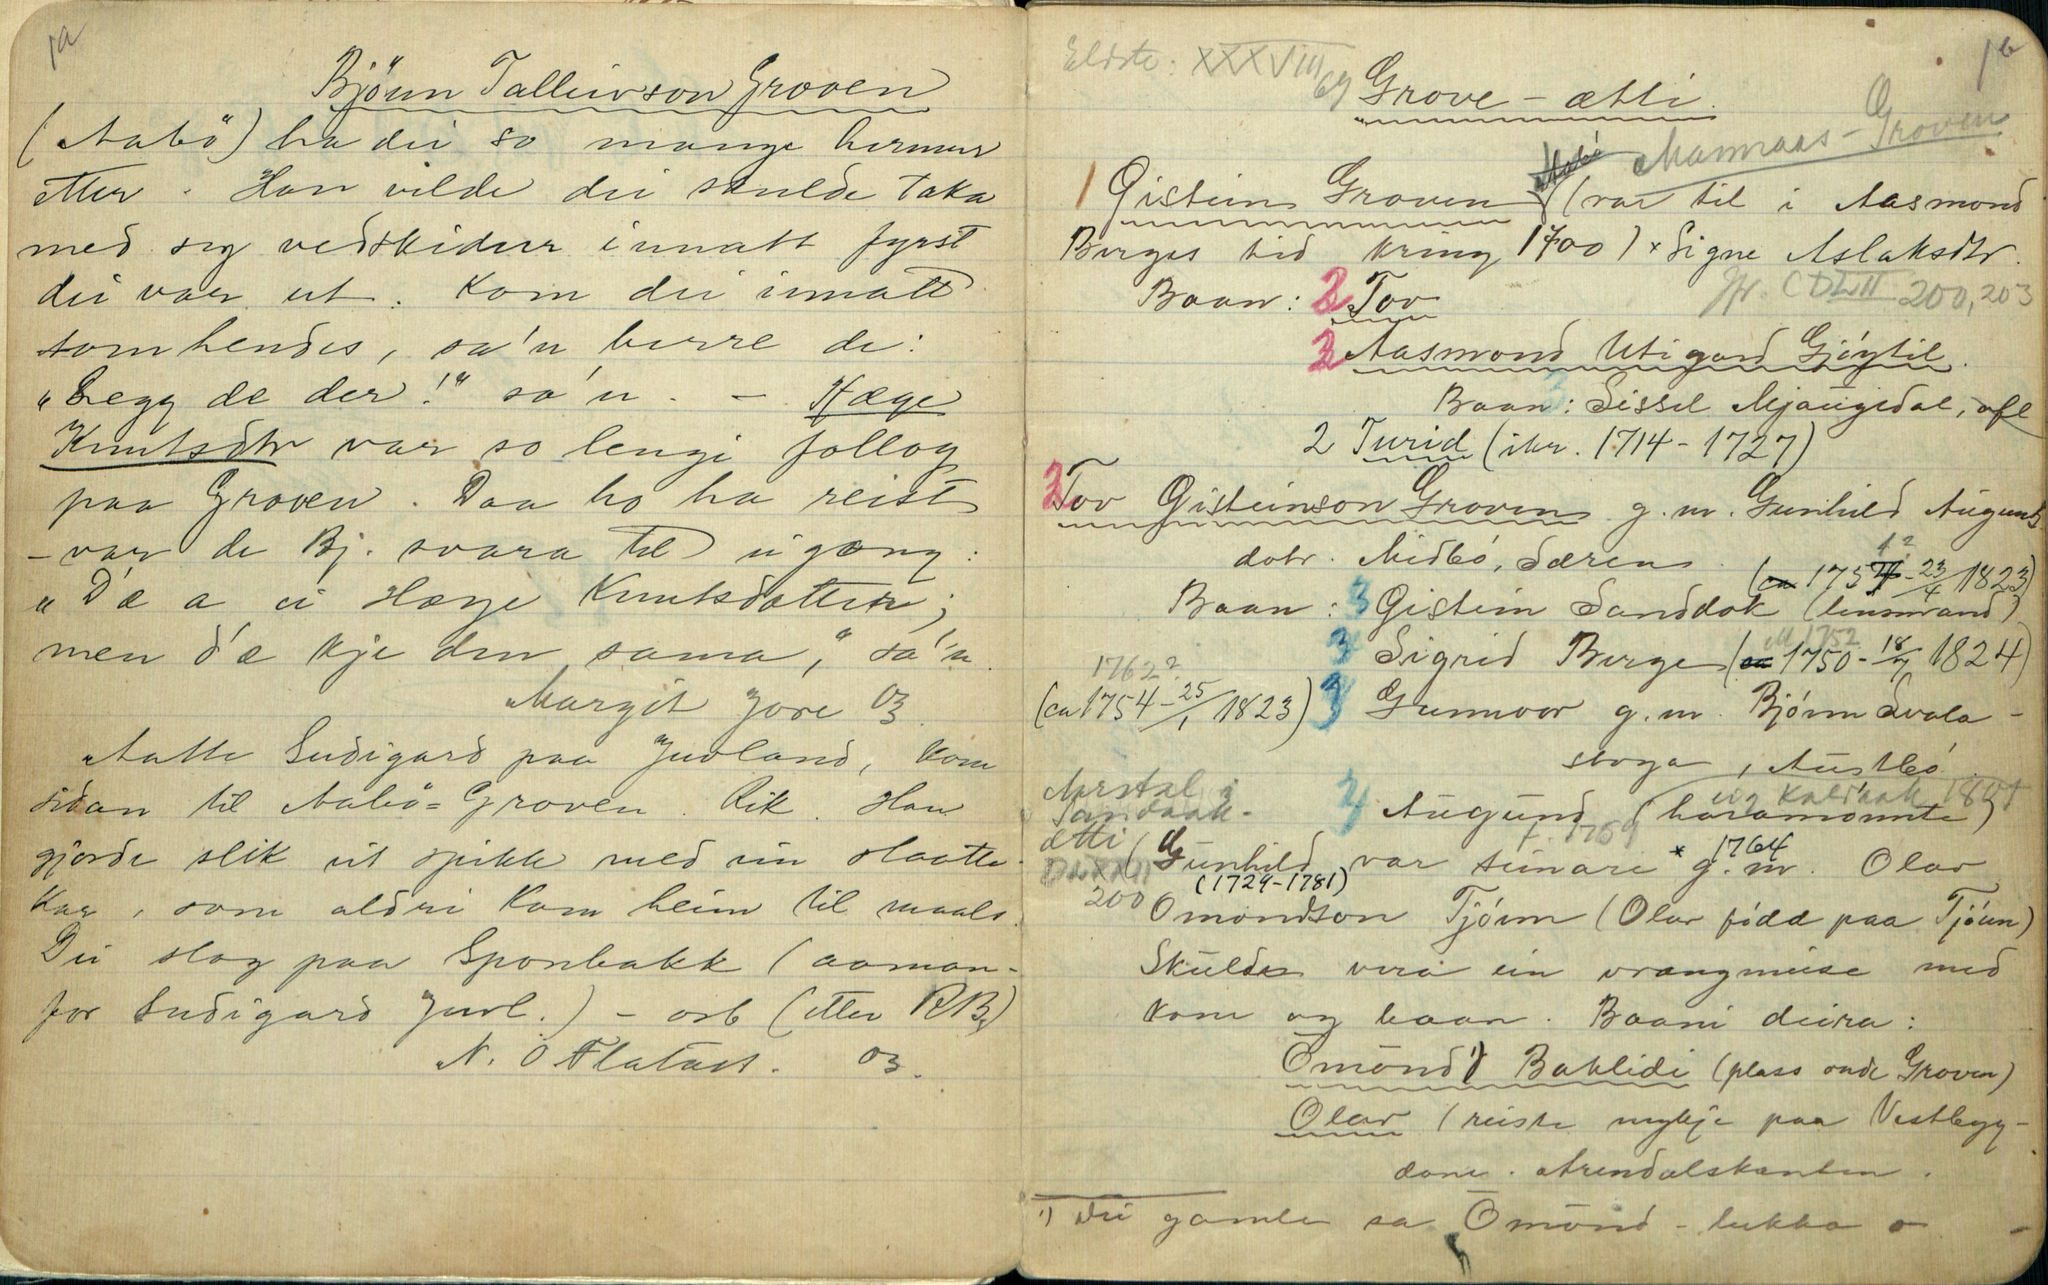 1a
Bjönn Talleivson Groven
(Aabö) ha dei so mange hermur
etter. Han vilde dei skulde taka
med seg vedskidur innatt fyrst
dei var ut. Kom dei innatt
tomhendes, sa'n berre de:
„Legg de der!" sa'n. – Hæge
Knutsdtr var so lengi follog
paa Groven. Daa ho ha reist
– var de Bj. svara til ei gong:
„D'æ a ei Hæge Knutsdotter;
men d'æ kje den sama," sa'n.
Margit Jore 03.
Aatte Sudigard paa Juvland, kom
sidan til Aabö-Groven. Rik. Han
gjorde slik ut spikk med ein slaatte-
kar, som aldri kom heim til maals.
Dei slog paa Sponbakk (aaman-
for Sudigard Juvl.) – osb (etter RBg)
N. O Flatast. 03.
1b
Eldste: XXXVIII 69
Grove-ætti.
Mannaas-Groven
1 Gistein Groven Aabö (var til i Aasmond
Berges tid kring 1700) × Signe Aslaksdtr.
Jfr. CDLII 200, 203
Baan: 2 Tov
2 Aasmond Utigard Gjöytil.
Baan: Sissel Mjaugedal, ofl
2 Turid (ikr. 1714-1727)
2 Tov Gisteinson Groven g.m. Gunhild Augunds
dotr. Midbö, Særen.
(ca 1757 - 23/4 1823)
Baan: 3 Gistein Sanddok (lensmand)
M 1752
3 Sigrid Berge (ca 1750 - 18/7 1824)
1762?
(ca 1754 - 25/1 1823) 3 Gunnvor g.m. Bjönn Svala-
stoga, Austbö.
og Kaldaak 1801
3 Augund (haramonnte)
f. 1759
Aarstal i
Sandaak-
ætti
200
(Gunhild var sunari × g.m. 1764 Olav
(1729-1781)
Omondson Tjönn (Olav född paa Tjönn)
Skulde vera ein vrangmeise med
kone og baan. Baani deira:
Omond 1) Baklidi (plass onde Groven)
Olav (reiste mykje paa Vestbygg-
dane. Arendalskanten.
1) Dei gamle sa Omond – lukka o –